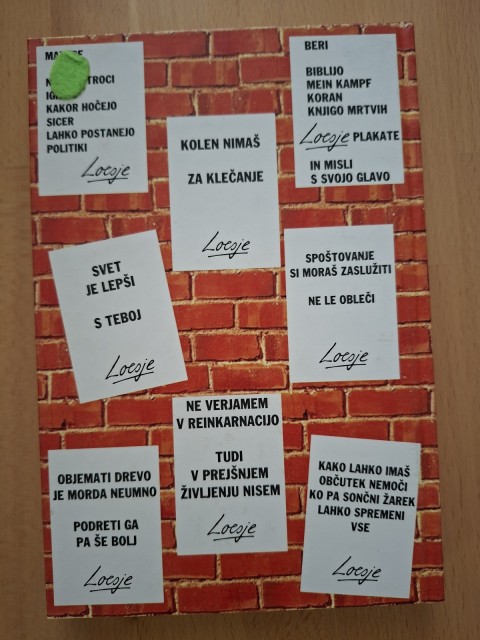 TROCI
KAKOR HOČEJO
SICER
LAHKO POSTANEJO
POLITIKI
Loesje
KOLEN NIMAŠ
ZA KLEČANJE
Loesje
BERI
BIBLIJO
MEIN KAMPF
KORAN
KNJIGO MRTVIH
Loesje PLAKATE
IN MISLI
S SVOJO GLAVO
SVET
JE LEPŠI
S TEBOJ
Loesje
SPOŠTOVANJE
SI MORAŠ ZASLUŽITI
NE LE OBLEČI
Loesje
OBJEMATI DREVO
JE MORDA NEUMNO
PODRETI GA
PA ŠE BOLJ
Loesje
NE VERJAMEM
V REINKARNACIJO
TUDI
V PREJŠNJEM
ŽIVLJENJU NISEM
Loesje
KAKO LAHKO IMAŠ
OBČUTEK NEMOČI
KO PA SONČNI ŽAREK
LAHKO SPREMENI
VSE
Loesje